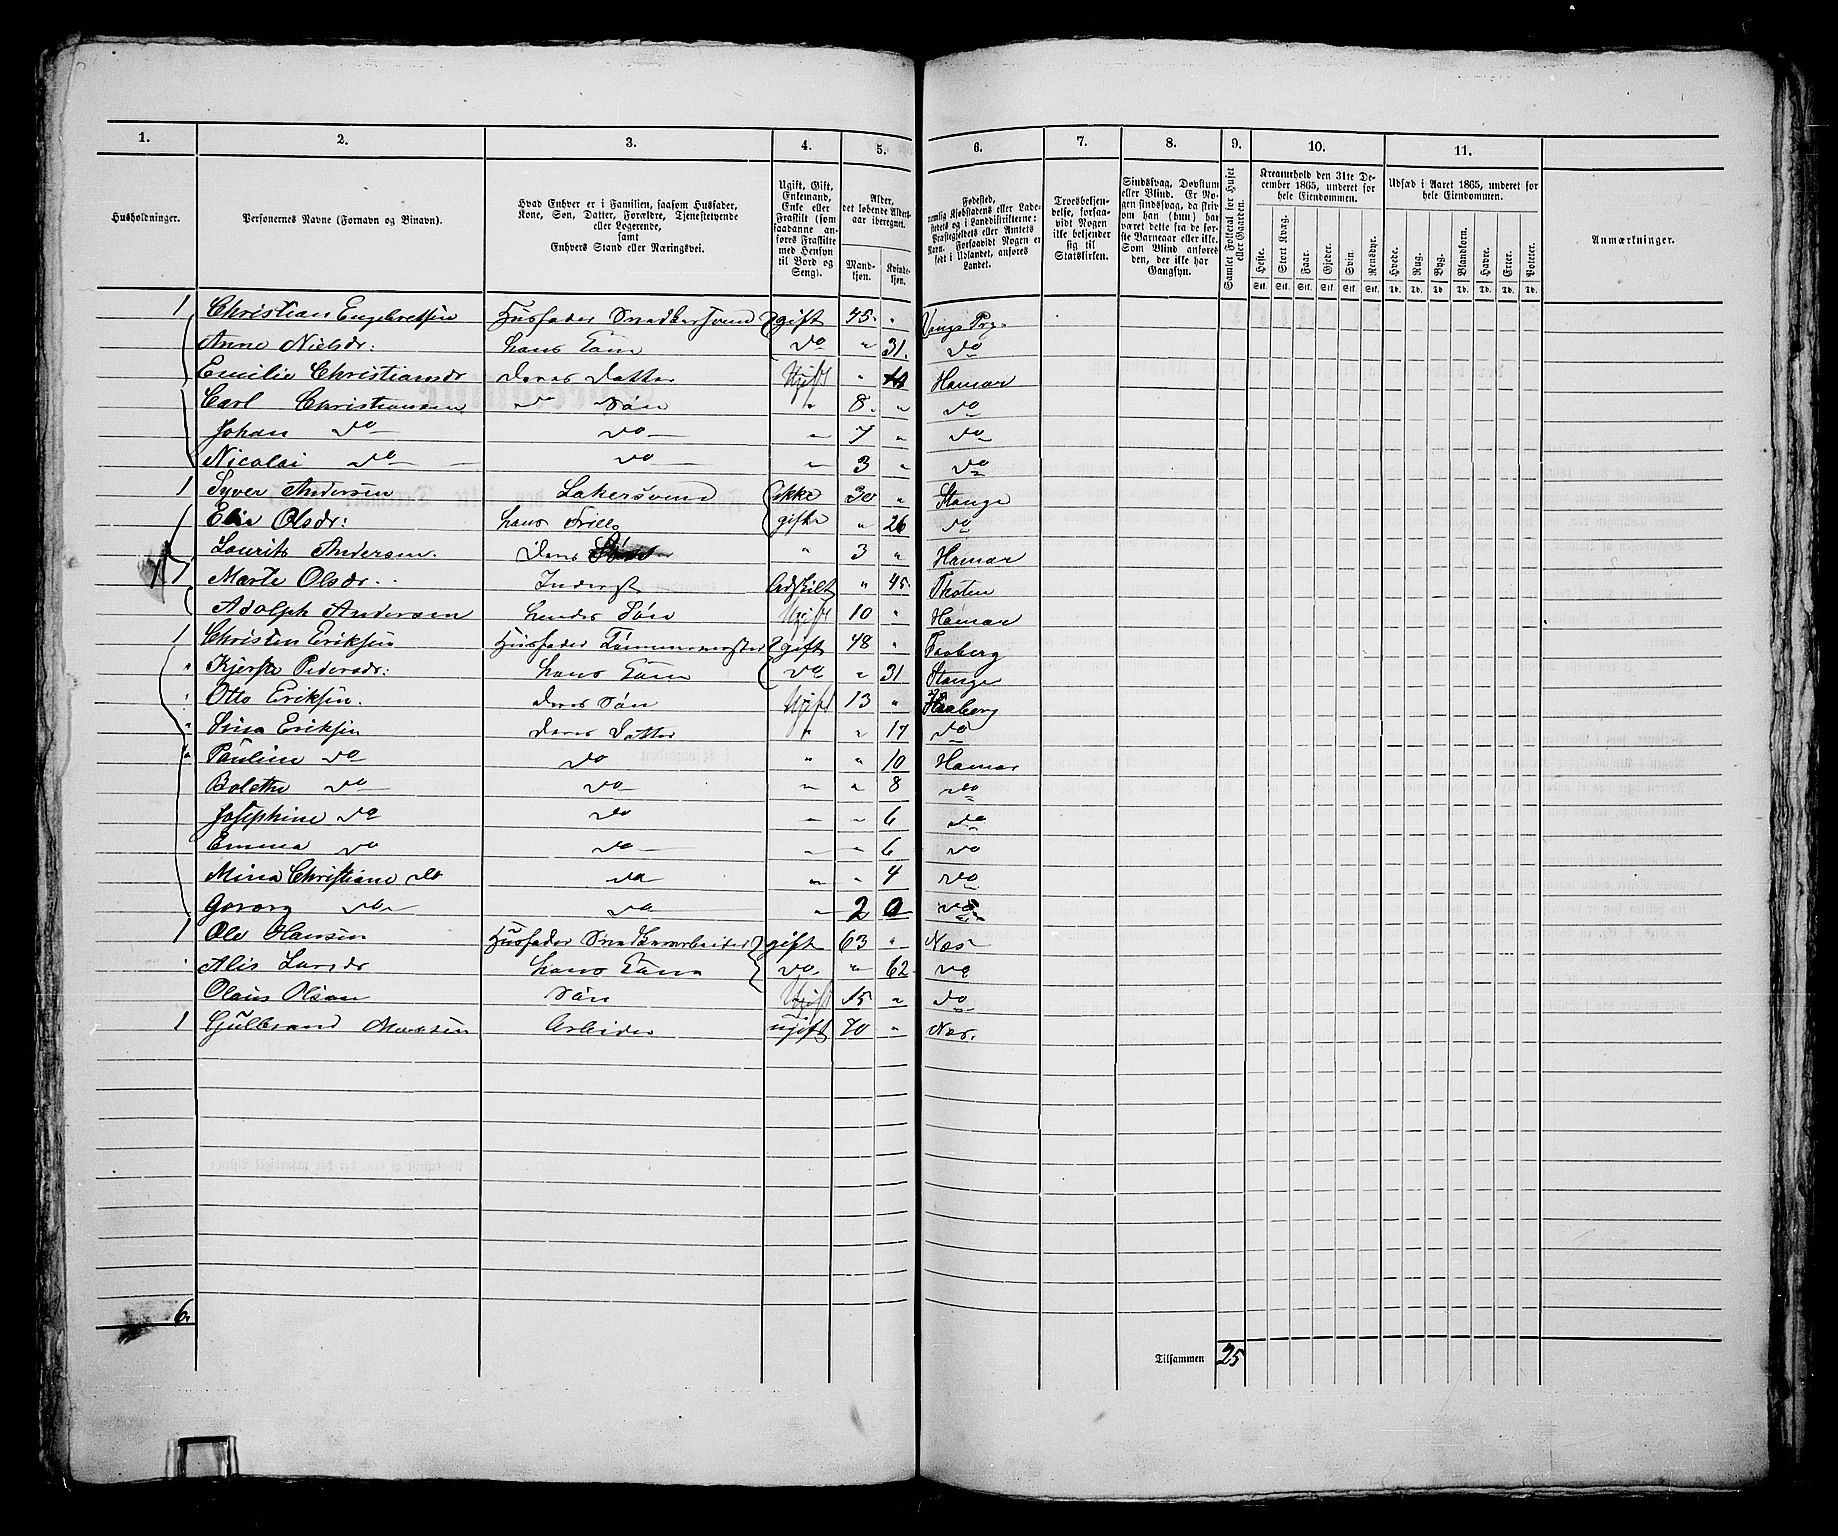 1. 2. 3. 4. 5. 6. 7. 8. 9. 10. 11.
Husholdninger.
Personernes Navne (Fornavn og Binavn).
Hvad Enhver er i Familien, saasom Husfader,
Kone, Søn, Datter, Forældre, Tjenestetyende
eller Logerende,
samt
Enhvers Stand eller Næringsvei.
Ugift, Gift,
Enkemand,
Enke eller
Fraskilt (som
saadanne an-
føres Fraskilte
med Hensyn
til Bord og
Seng).
Alder,
det løbende Alders-
aar iberegnet.
Mand-
kjøn.
Kvinde-
kjøn.
Fødested,
nemlig Kjøbstadens eller Lade-
stedets og i Landdistrikterne:
Præstegjeldets eller Amtets
Navn. Forsaavidt Nogen er
født i Udlandet, anføres
Landet.
Troesbekjen-
delse, forsaa-
vidt Nogen
ikke bekjender
sig til
Statskirken.
Sindssvag, Døvstum
eller Blind. Er No-
gen sindssvag, da skriv
om han (hun) har
været dette fra de før-
ste Barneaar eller ikke.
Som Blind anføres
den, der ikke har
Gangsyn.
Samlet Folketal for Huset
eller Gaarden.
Kreaturhold den 31te De-
cember 1865, underet for
hele Eiendommen.
Heste. Stort Kvæg. Faar. Gjeder. Svin. Rensdyr.
Stk. Stk. Stk. Stk. Stk. Stk.
Udsæd i Aaret 1865, underet for
hele Eiendommen.
Hvede. Rug. Byg. Blandkorn. Havre. Erter. Poteter.
Td. Td. Td. Td. Td. Td. Td.
Anmærkninger.
1 Christian Engebretsen Husfader Snedkersvend gift 45 " Vangs Prg.
Anne Nielsdr: hans Kone do " 31. do
Emilie Christiansdr deres Datter Ugift " 10 Hamar
Carl Christiansen do Søn " 8. " do
Johan do do " 7 " do
Nicolai do do " 3 " do
1 Syver Andersen ikke 30 " Stange
Olsdr: hans gifte " 26 do
Laurits Andersen. deres Søn " 3 " Hamar
1 Marte Olsdr. Inderst Adskilt " 45. Thoten
Adolph Andersen hendes Søn Ugift 10 " Hamar
1 Christen Eriksen Husfader Tømmermester gift 48 " Faaberg
" Kjersti Pedersdr: hans Kone do " 31 Stange
" Otto Eriksen. deres Søn Ugift 13 " Faaberg
" Sina Eriksen deres Datter " " 17 do
" Pauline do do " " 10 Hamar
Bolethe do do " " 8 do
Josephine do do " " 6 do
Emma do do " " 6 do
Mina Christiane do do " " 4 do
Georg do do " 2 0 do
1 Ole Hansen Husfader Snedkerarbeider gift 63 " Næs
Larsdr hans Kone do. " 62 do
Olaus Olsen Søn Ugift 15 " do
1 Gulbrand Arbeider ugift 70 " Næs.
6.
Tilsammen 25